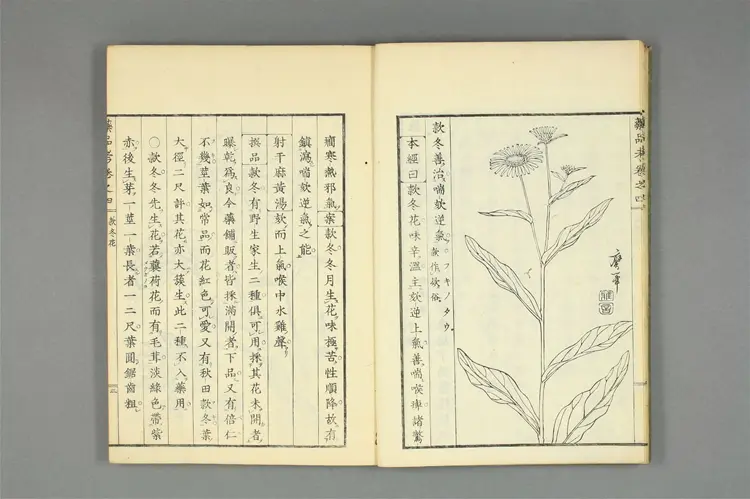 藥品考卷之四
款冬善治喘欬逆氣 款作欵俗 フキノタウ
本經曰款冬花味辛溫主欬逆上氣善喘喉痺諸驚
癇寒熱邪氣案款冬冬月生花味極苦性順降故有
鎮瀉喘欬逆氣之能
射干麻黃湯欬而上氣喉中水雞聲
撰品款冬有野生家生二種俱可用採其花未開者
曝乾爲良今藥鋪販者皆採滿開者下品又有倍仁
不幾草葉如常品而花紅色可愛又有秋田款冬葉
大徑二尺許其花亦大簇生此二種不入藥用
〇款冬冬先生花若蘘荷花而有毛茸淡綠色帶紫
赤後生芽一莖一葉長者一二尺葉圓鋸齒粗
藥品考卷之四 款冬花